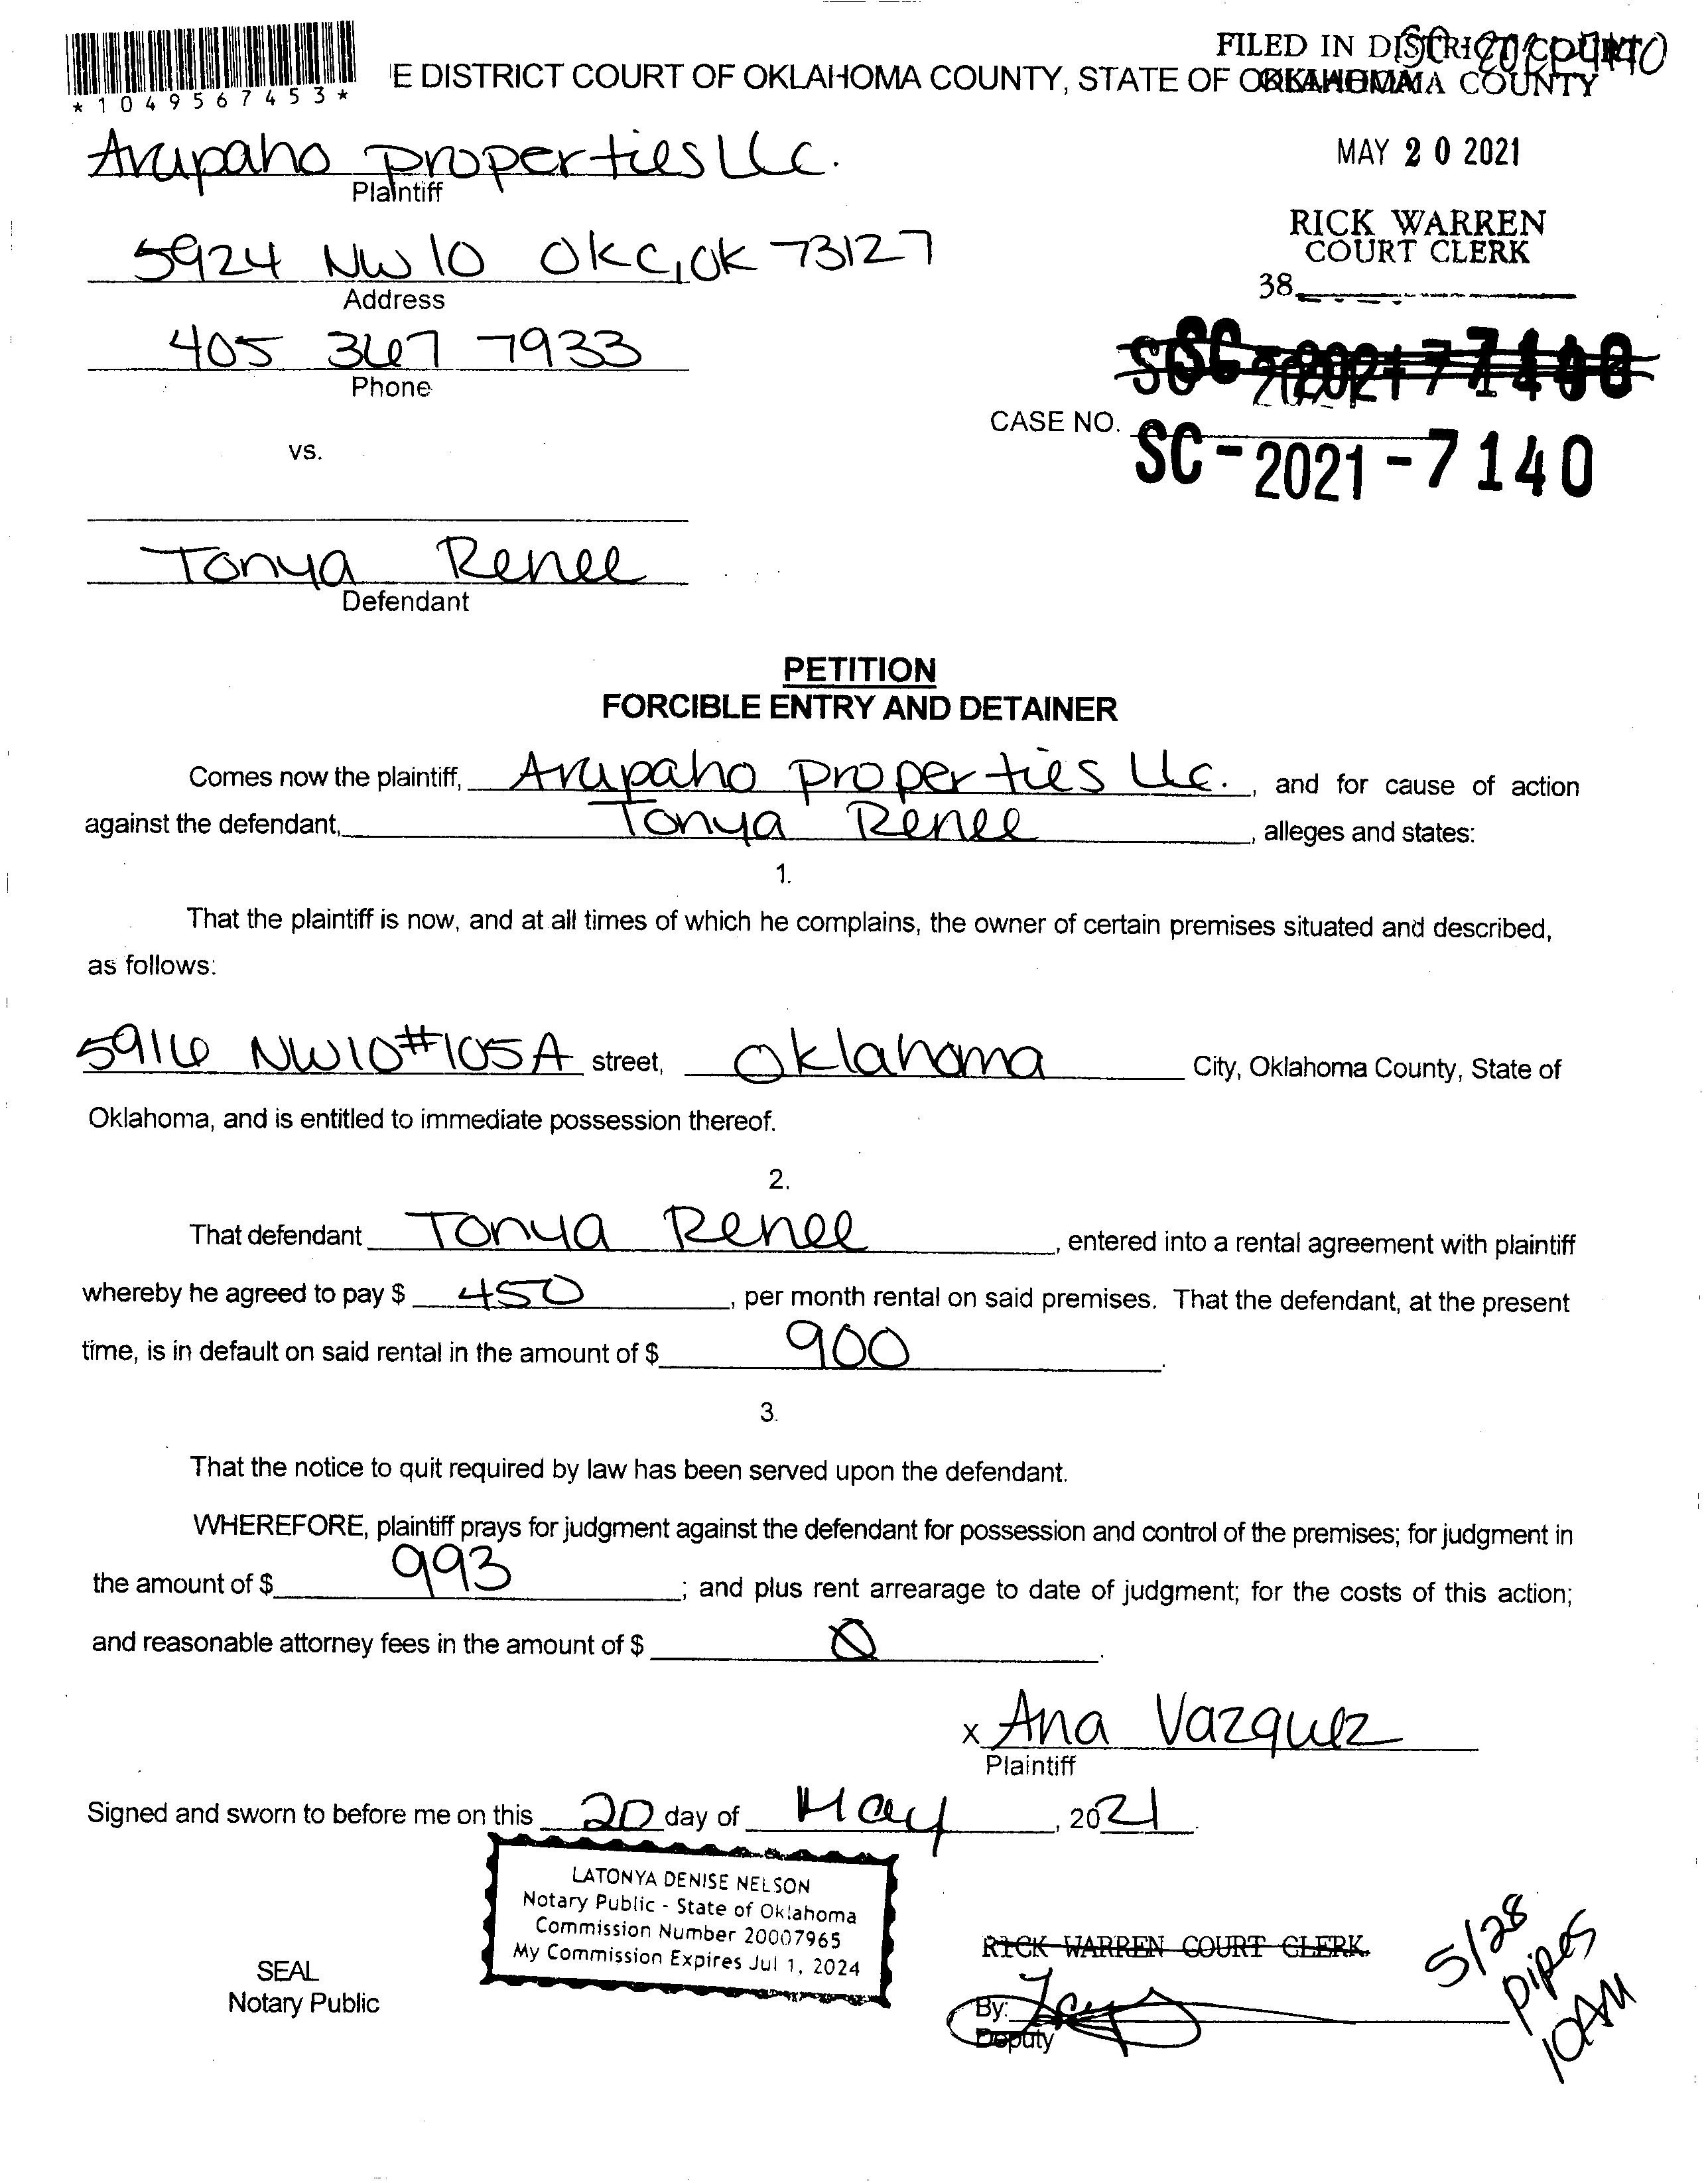 *1049567453*
E DISTRICT COURT OF OKLAHOMA COUNTY, STATE OF OKLAHOMA
FILED IN DISTRICT COURT
OKLAHOMA COUNTY
MAY 20 2021
RICK WARREN
COURT CLERK
38
Arapaho properties LLC.
Plaintiff
5924 NW 10 OKC, OK 73127
Address
405 367 7933
Phone
vs.
CASE NO.
SC-2021-7140
Tonya Renee
Defendant
PETITION
FORCIBLE ENTRY AND DETAINER
Comes now the plaintiff, Arapaho properties LLC., and for cause of action
against the defendant, Tonya Renee, alleges and states:
1.
That the plaintiff is now, and at all times of which he complains, the owner of certain premises situated and described,
as follows:
5916 NW10 #105A street, Oklahoma City, Oklahoma County, State of
Oklahoma, and is entitled to immediate possession thereof.
2.
That defendant Tonya Renee, entered into a rental agreement with plaintiff
whereby he agreed to pay $ 450, per month rental on said premises. That the defendant, at the present
time, is in default on said rental in the amount of $ 900.
3.
That the notice to quit required by law has been served upon the defendant.
WHEREFORE, plaintiff prays for judgment against the defendant for possession and control of the premises; for judgment in
the amount of $ 993; and plus rent arrearage to date of judgment; for the costs of this action;
and reasonable attorney fees in the amount of $ 0.
x Ana Vazquez
Plaintiff
Signed and sworn to before me on this 20 day of May, 2021.
LATONYA DENISE NELSON
Notary Public - State of Oklahoma
Commission Number 20007965
My Commission Expires Jul 1, 2024
SEAL
Notary Public
RICK WARREN COURT CLERK
By:
Deputy
5/28
Pipes
10AM